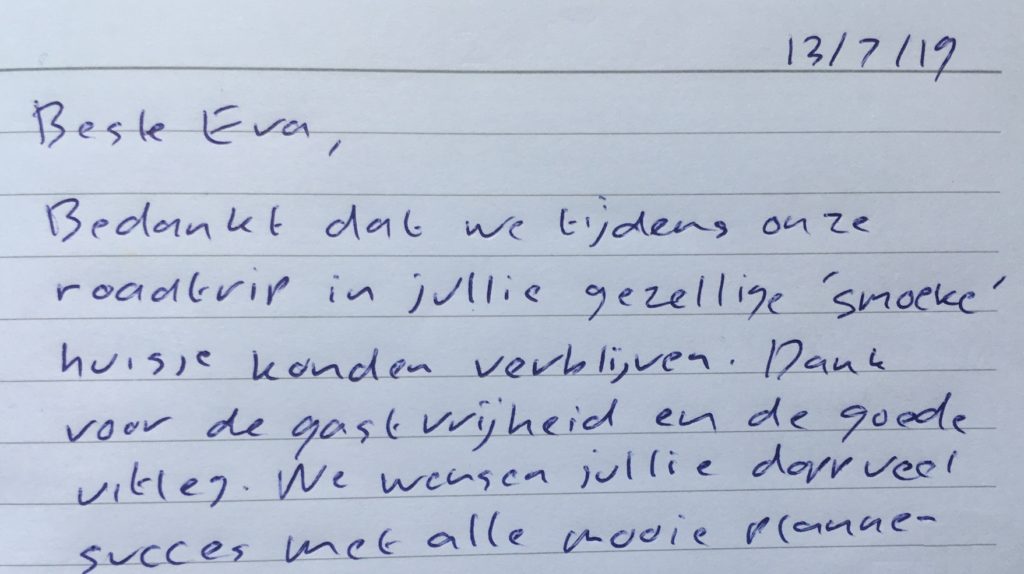 13/7/19
Beste Eva,
Bedankt dat we tijdens onze
roadtrip in jullie gezellige 'smoeke'
huisje konden verblijven. Dank
voor de gastvrijheid en de goede
uitleg. We wensen jullie
succes met alle mooie plannen